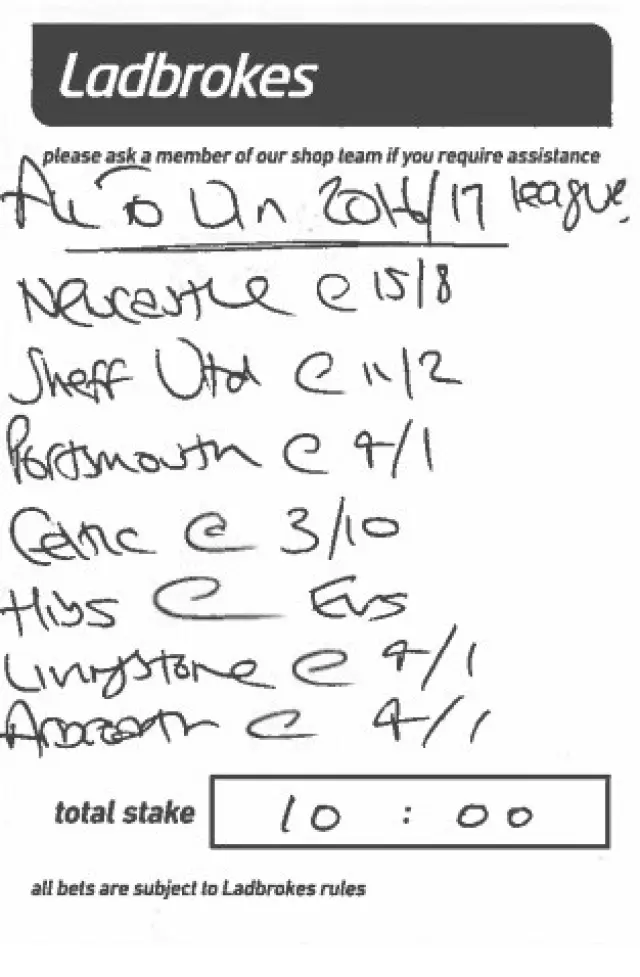 Ladbrokes
please ask a member of our shop team if you require assistance
All to Win 2016/17 league.
Newcastle @ 15/8
Sheff Utd @ 11/2
Portsmouth @ 4/1
Celtic @ 3/10
Hibs @ Evs
Livingstone @ 4/1
Arbroath @ 4/1
total stake 10 : 00
all bets are subject to Ladbrokes rules